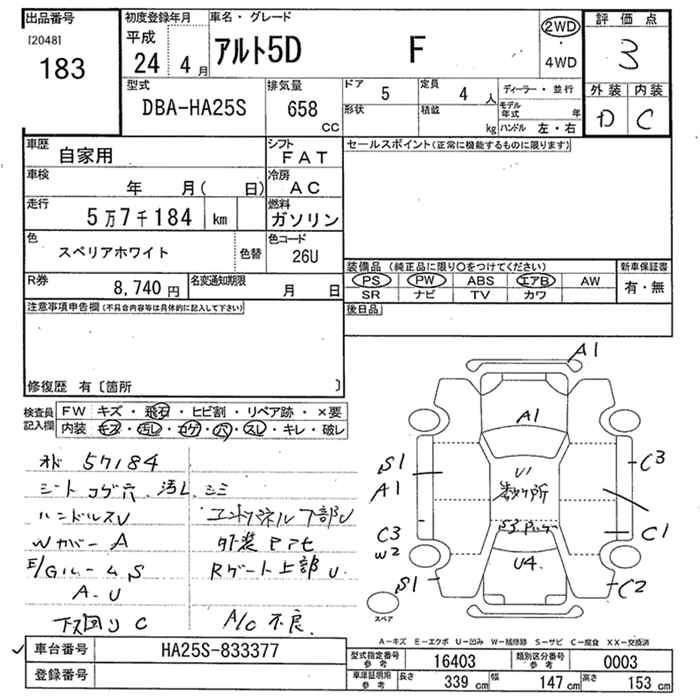 出品番号
[2048]
183
初度登録年月
平成
24 4月
車名・グレード
アルト5D F
2WD
・
4WD
評価点
3
外装 内装
D C
型式
DBA-HA25S
排気量
658
cc
ドア 5
定員 4 人
形状
積載 kg
ディーラー・並行
モデル年式 年
ハンドル 左・右
車歴
自家用
シフト
FAT
車検
年 月( 日)
冷房
AC
走行
5万7千184 km
燃料
ガソリン
色
スペリアホワイト
色替
色コード
26U
R券
8,740円
名変通知期限
月 日
セールスポイント(正常に機能するものに限ります)
装備品 (純正品に限り○をつけてください)
新車保証書
PS PW ABS エアB AW
有・無
SR ナビ TV カワ
後日品
注意事項申告欄(不具合内容等は具体的に記入して下さい)
修復歴 有〔箇所 〕
検査員
記入欄
FW キズ・飛石・ヒビ割・リペア跡・×要
内装 キズ・汚レ・コゲ・穴・スレ・キレ・破レ
オド 57184
シートコゲ穴.汚レ.シミ
ハンドルスU
エンドパネル下部U
WカバーA
外装キズ
E/GルームS
Rゲート上部U.
A.U
下回りC
A/C不良.
A1
A1
S1
A1
C3
C3
W2
U1
C1
S1
U4.
C2
スペア
A-キズ E-エクボ U-凹み W-補修跡 S-サビ C-腐食 XX-交換済
車台番号
HA25S-833377
登録番号
型式指定番号
参考
16403
類別区分番号
参考
0003
車庫証明用
参考
長さ 339 cm
幅 147 cm
高さ 153 cm